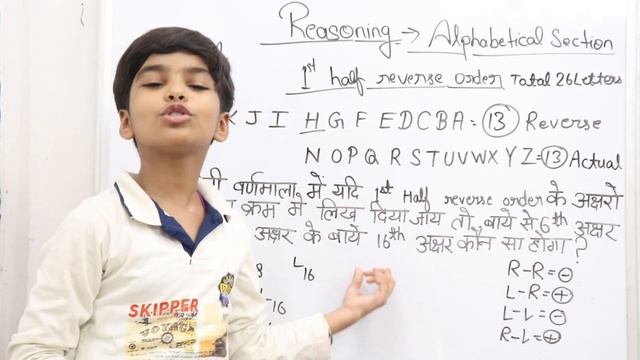 Reasoning → Alphabetical Section
1st half reverse order Total 26 Letters
K J I H G F E D C B A = 13 Reverse
N O P Q R S T U V W X Y Z = 13 Actual
वर्णमाला में यदि 1st Half reverse order के अक्षरो
क्रम में लिख दिया जाय तो, बाये से 6th अक्षर
अक्षर के बाये 16th अक्षर कौन सा होगा ?
8 L16
-16
R-R=-
L-R=+
L-L=-
R-L=+
SKIPPER
VOYAGE